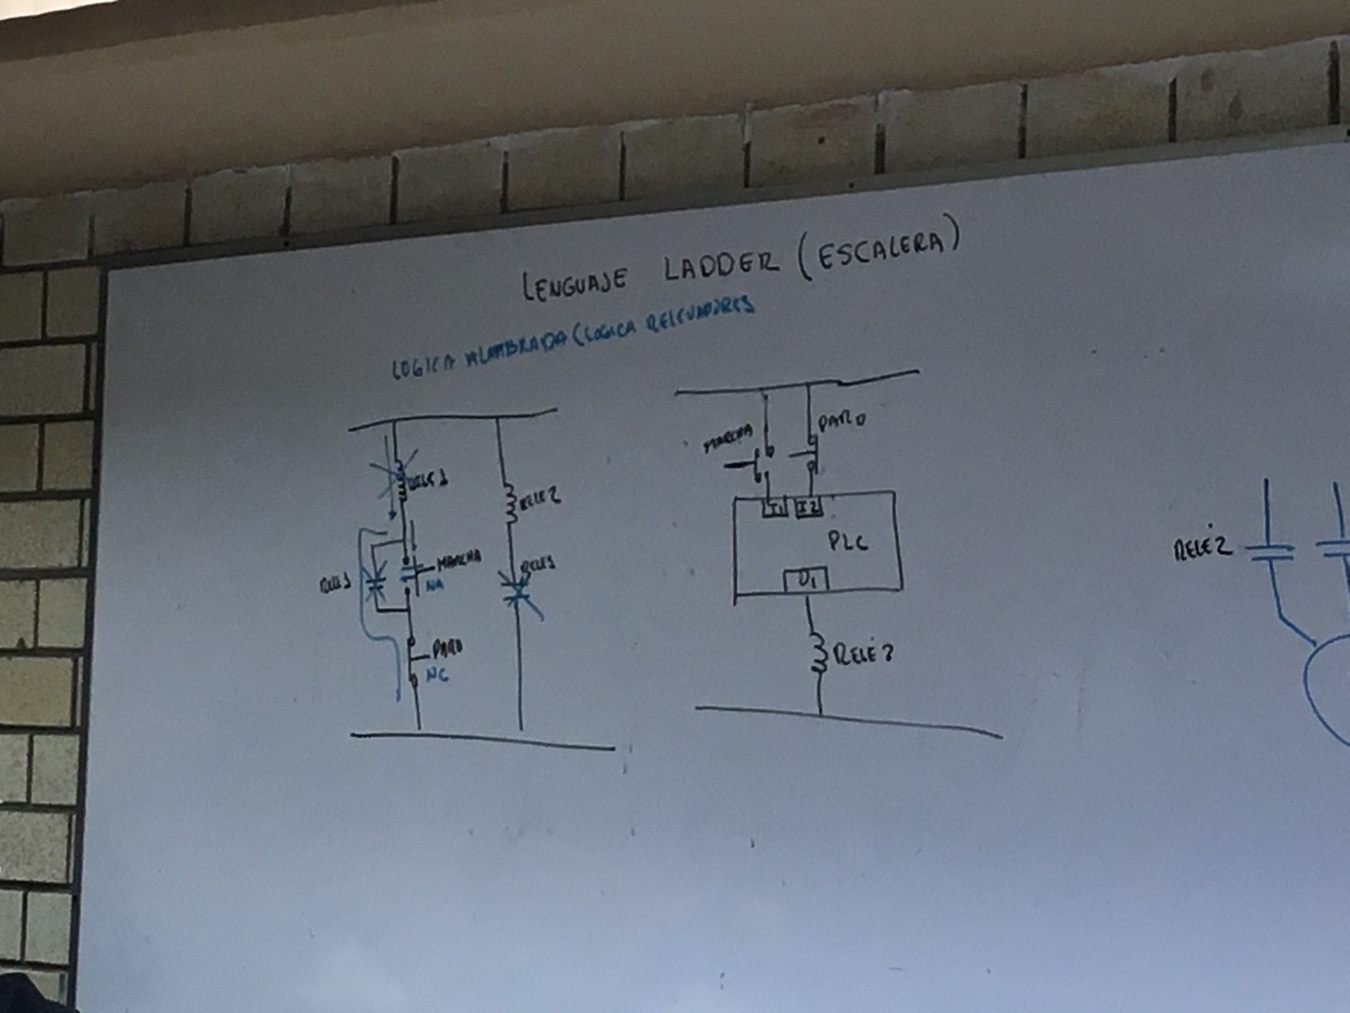 LENGUAJE LADDER (ESCALERA)
LOGICA ALAMBRADA (LOGICA RELEVADORES
RELE 1
RELE 2
RELE 1
MARCHA
NA
RELE 1
PARO
NC
MARCHA
PARO
I1 I2
PLC
O1
RELÉ 2
RELÉ 2